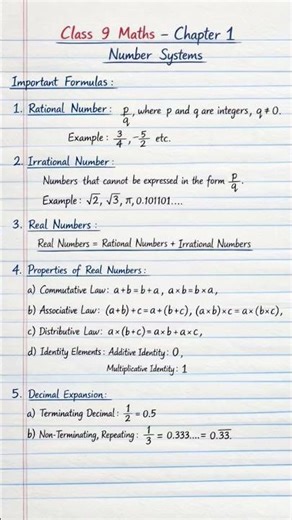 Class 9 Maths – Chapter 1
Number Systems
Important Formulas :
1. Rational Number : p/q, where p and q are integers, q ≠ 0.
Example : 3/4, -5/2 etc.
2. Irrational Number :
Numbers that cannot be expressed in the form p/q.
Example : √2, √3, π, 0.101101....
3. Real Numbers :
Real Numbers = Rational Numbers + Irrational Numbers
4. Properties of Real Numbers :
a) Commutative Law : a+b = b+a, a×b = b×a,
b) Associative Law : (a+b)+c = a+(b+c), (a×b)×c = a×(b×c),
c) Distributive Law : a×(b+c) = a×b + a×c,
d) Identity Elements : Additive Identity : 0,
Multiplicative Identity : 1
5. Decimal Expansion :
a) Terminating Decimal : 1/2 = 0.5
b) Non-Terminating, Repeating : 1/3 = 0.333.... = 0.3̅3̅.